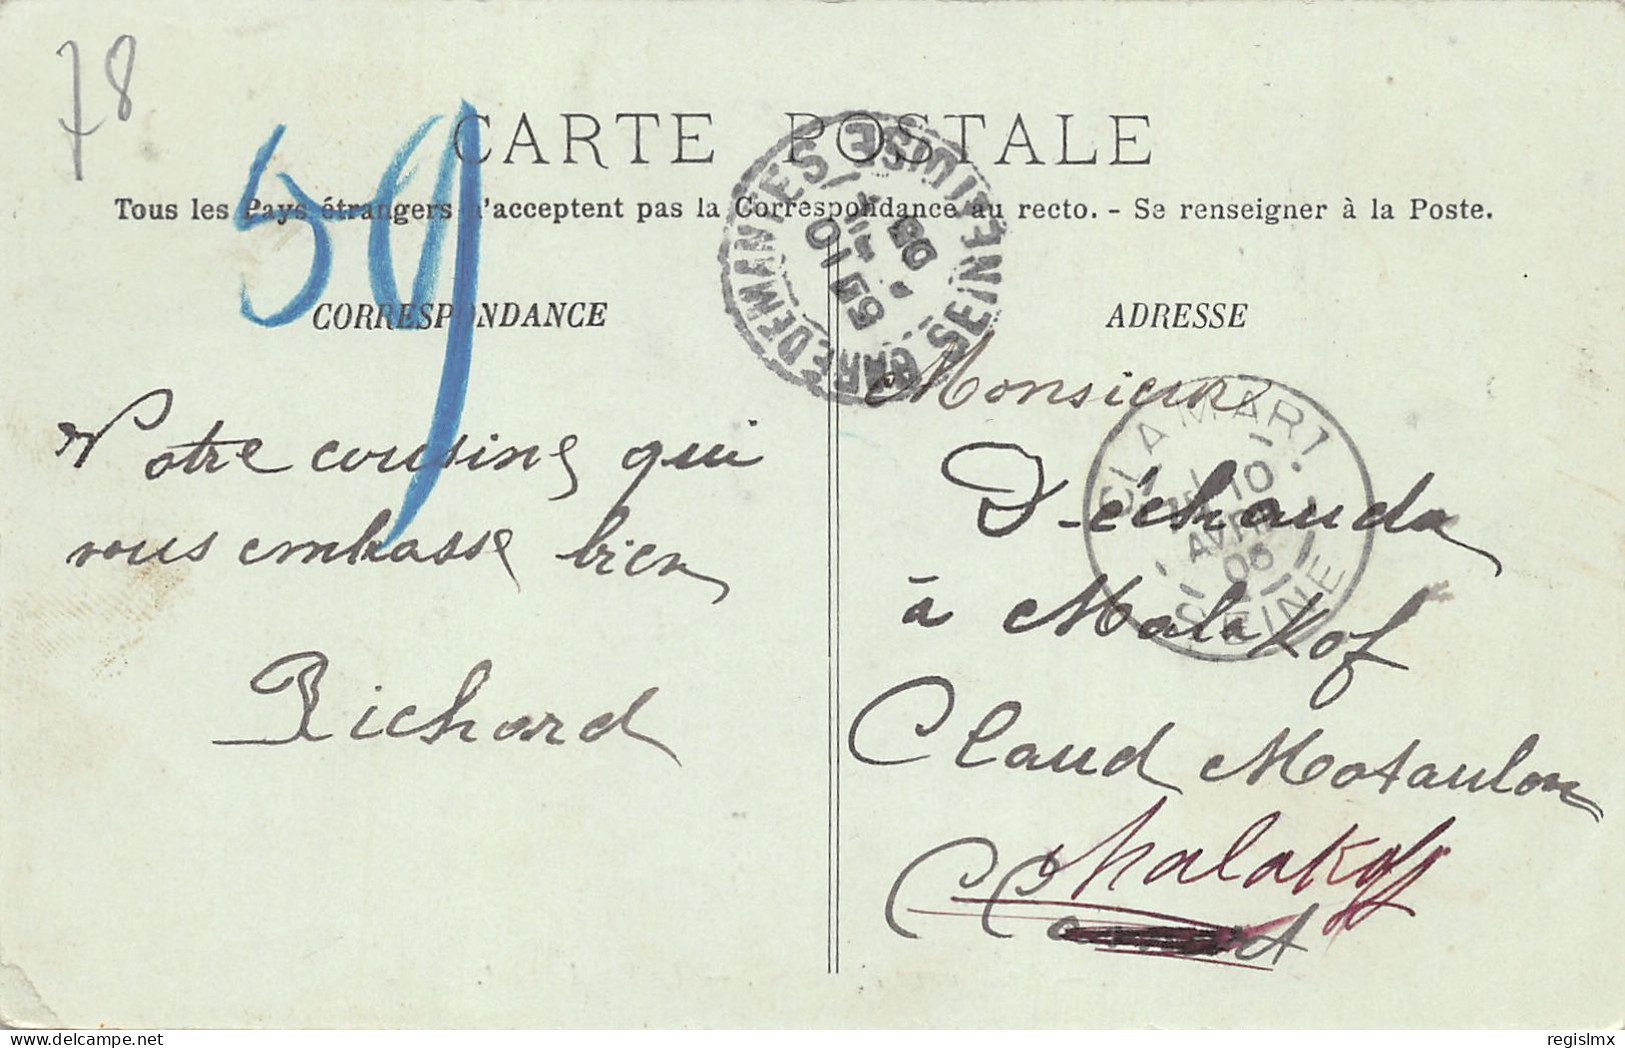 78
59
CARTE POSTALE
Tous les Pays étrangers n'acceptent pas la Correspondance au recto. - Se renseigner à la Poste.
CORRESPONDANCE
Votre cousine qui
vous embrasse bien
Richard
GARE DE MANTES
SEINE ET OISE
10
ADRESSE
Monsieur
Déchauda
à Malakof
Claud Motaulon
Malakof
CLAMART
10
AVRIL
SEINE
regislmx